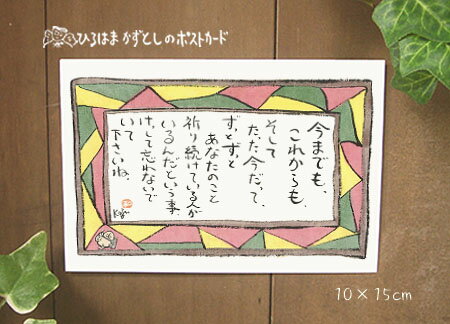 ひろはま かずとしのポストカード
今までも、
これからも、
そして
たった今だって、
ずっとずっと
あなたのこと
祈り続けている人が
いるんだという事
けして忘れないで
いて
下さいね。
10×15cm